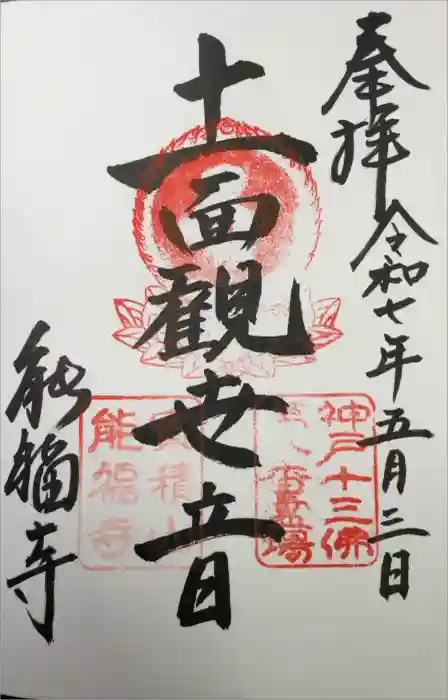 奉拝 令和七年五月三日
十一面觀世音
能福寺
神戸十三佛
第八番霊場
宝積山
能福寺